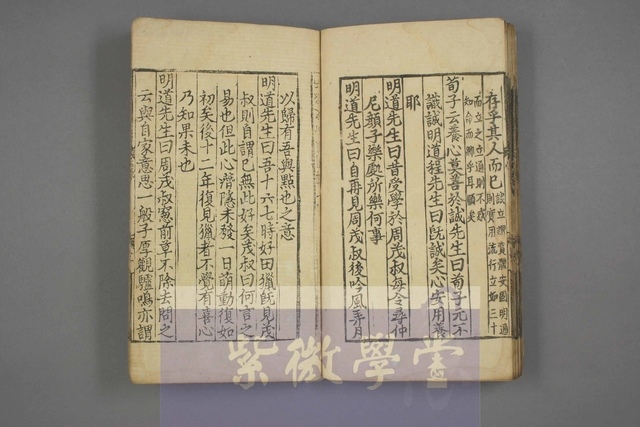 存乎其人而已
荀子云養心莫善於誠先生曰荀子元不
識誠明道程先生曰旣誠矣心安用養
耶
明道先生曰昔受學於周茂叔每令尋仲
尼顔子樂處所樂何事
明道先生曰自再見周茂叔後吟風弄月
以歸有吾與點也之意
明道先生曰吾十六七時好田獵旣見茂
叔則自謂已無此好矣茂叔曰何言之
易也但此心潛隱未發一日萌動復如
初矣後十二年復見獵者不覺有喜心
乃知果未也
明道先生曰周茂叔窓前草不除去問之
云與自家意思一般子厚觀驢鳴亦謂
紫微學堂